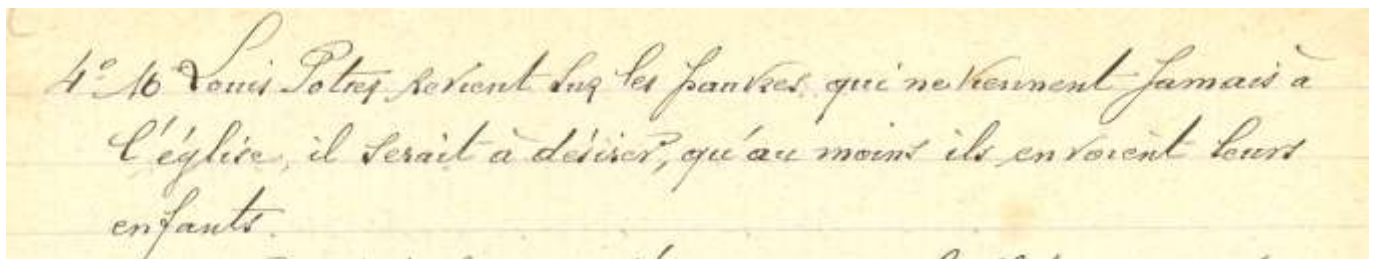 4° M Louis Potrez revient sur les pauvres, qui ne viennent jamais à
l'église, il serait à désirer, qu'au moins ils envoient leurs
enfants.